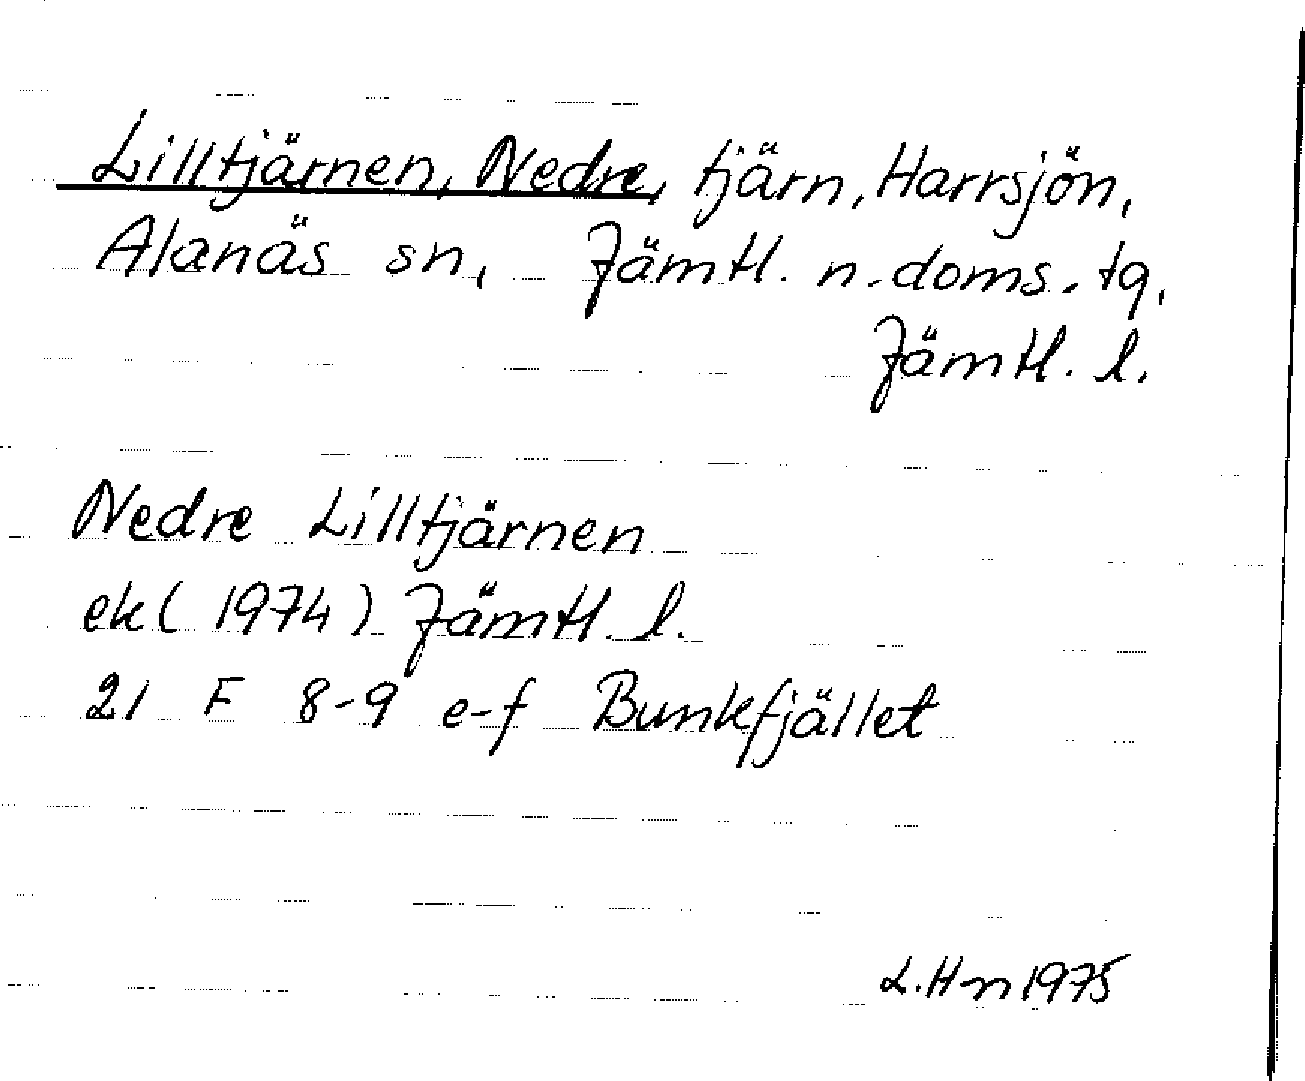 Lilltjärnen, Nedre, tjärn, Harrsjön,
Alanäs sn, Jämtl. n. doms. tg.
Jämtl. l.
Nedre Lilltjärnen
ek (1974) Jämtl. l.
21 F 8-9 e-f Bunkfjället
L. Hn 1975